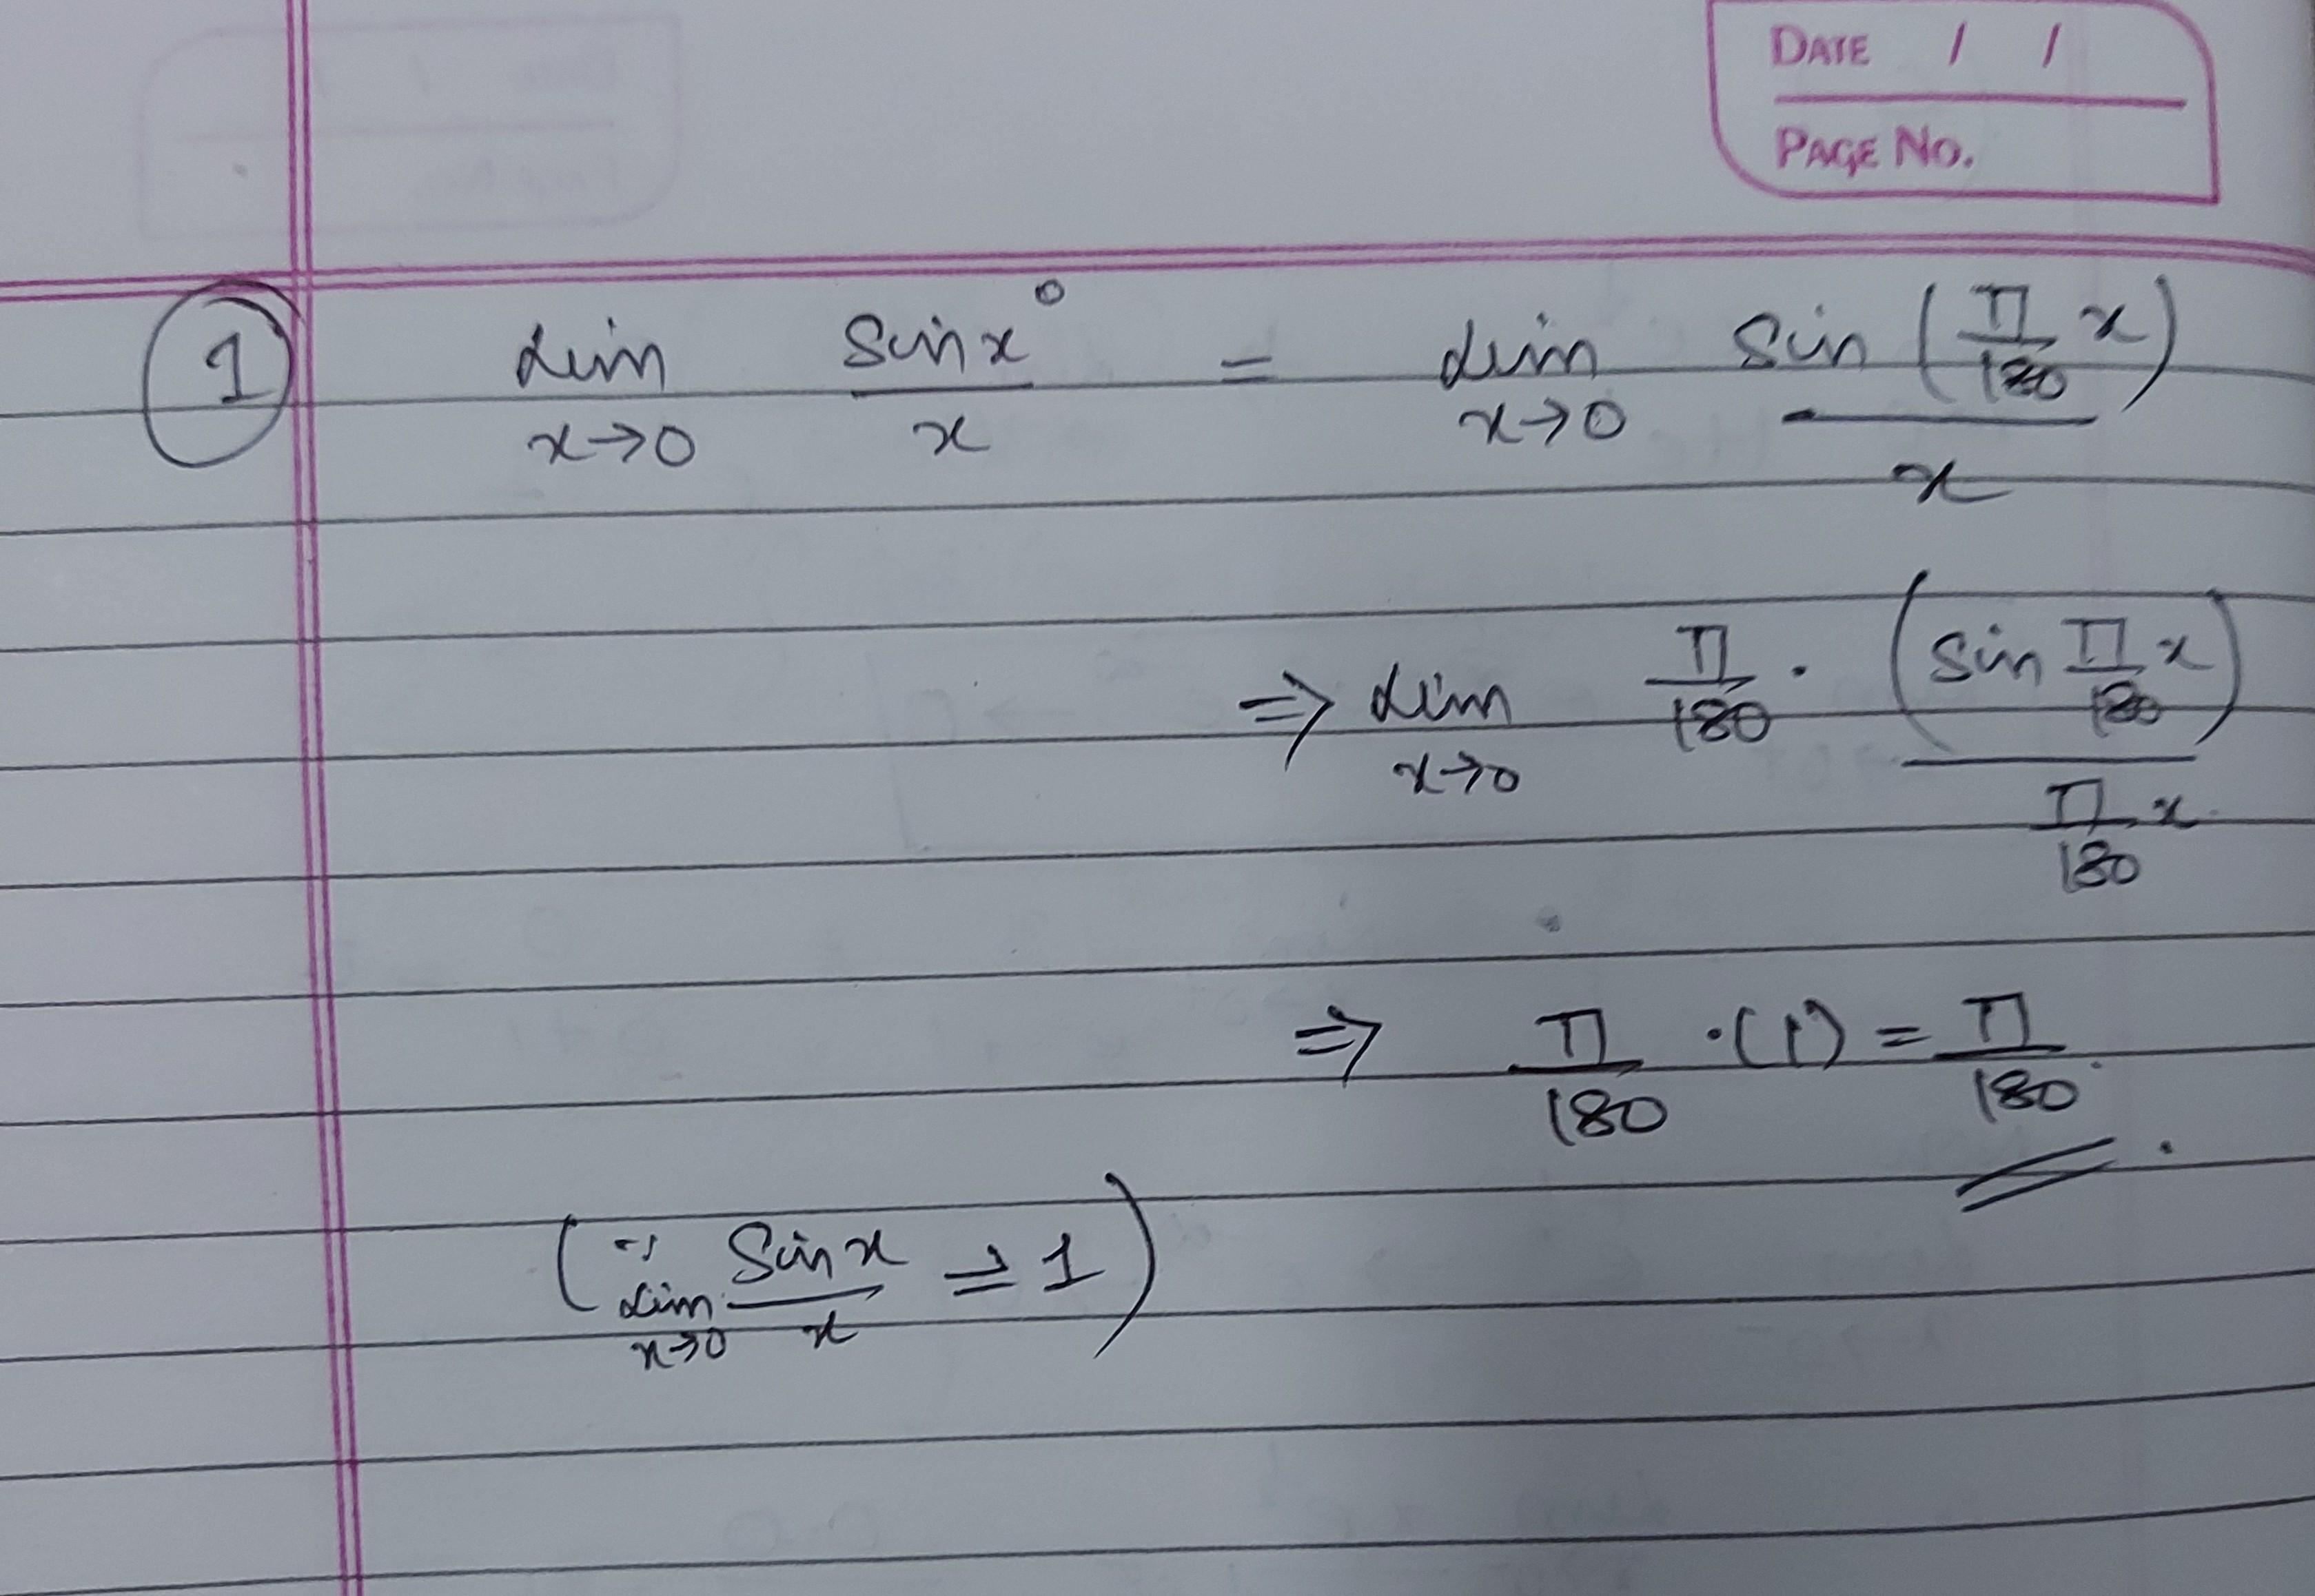 DATE / /
PAGE NO.
1 Lim x→0 Sin x° / x = Lim x→0 Sin (π/180 x) / x
⇒ Lim x→0 π/180 · (Sin π/180 x) / π/180 x
⇒ π/180 · (1) = π/180 .
(∵ Lim x→0 Sin x / x = 1)